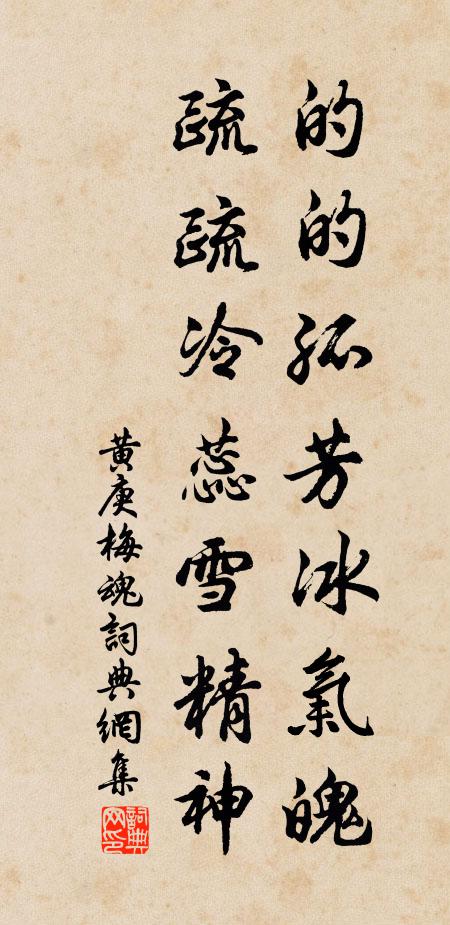 的的孤芳冰氣魄
疏疏冷蕊雪精神
黃庚梅魂詞典網集
詞典网印